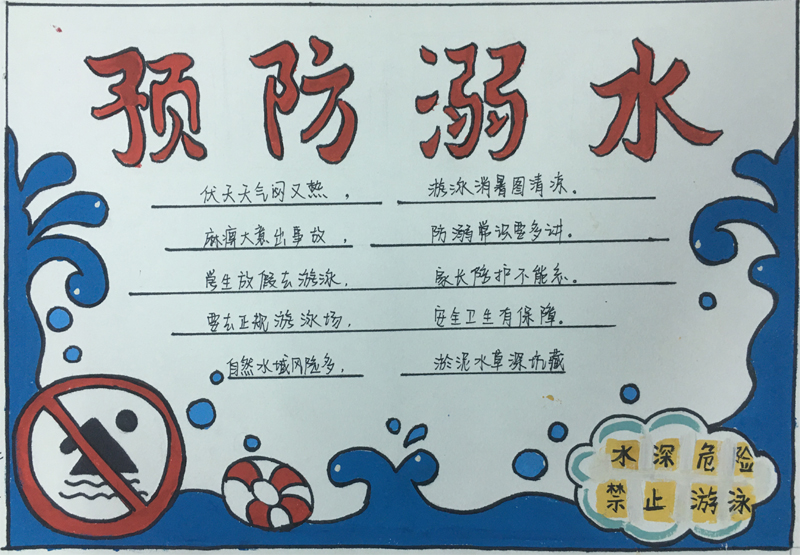 预防溺水
伏天天气闷又热， 游泳消暑图清凉。
麻痹大意出事故， 防溺常识要多讲。
学生放假去游泳， 家长陪护不能忘。
要去正规游泳场， 安全卫生有保障。
自然水域风险多， 淤泥水草深坑藏
水深危险
禁止游泳